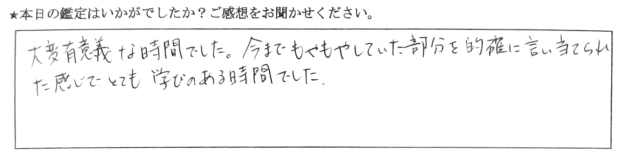 ★本日の鑑定はいかがでしたか？ご感想をお聞かせください。
大変有意義な時間でした。今までもやもやしていた部分を的確に言い当てられ
た感じでとても学びのある時間でした．